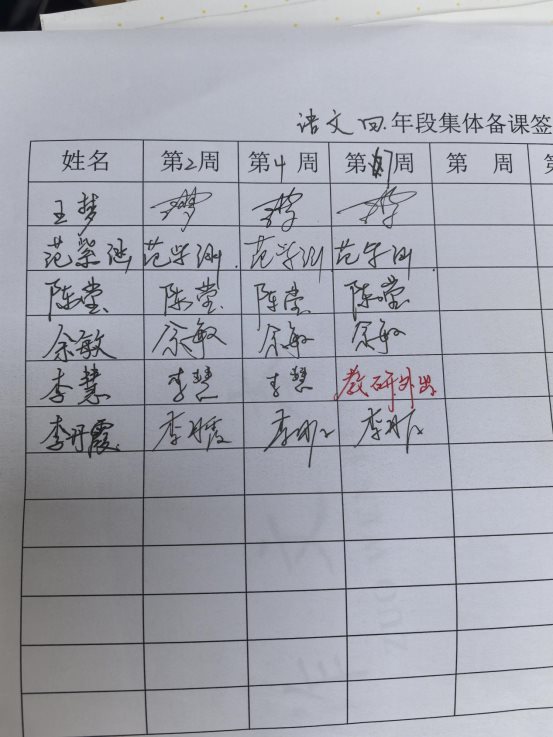 语文四年段集体备课签
姓名 第2周 第4周 第7周 第 周 第
王梦
范紫涵 范紫涵 范紫涵 范紫涵
陈莹 陈莹 陈莹 陈莹
余敏 余敏 余敏 余敏
李慧 李慧 李慧 教研外出
李丹霞 李丹霞 李丹霞 李丹霞